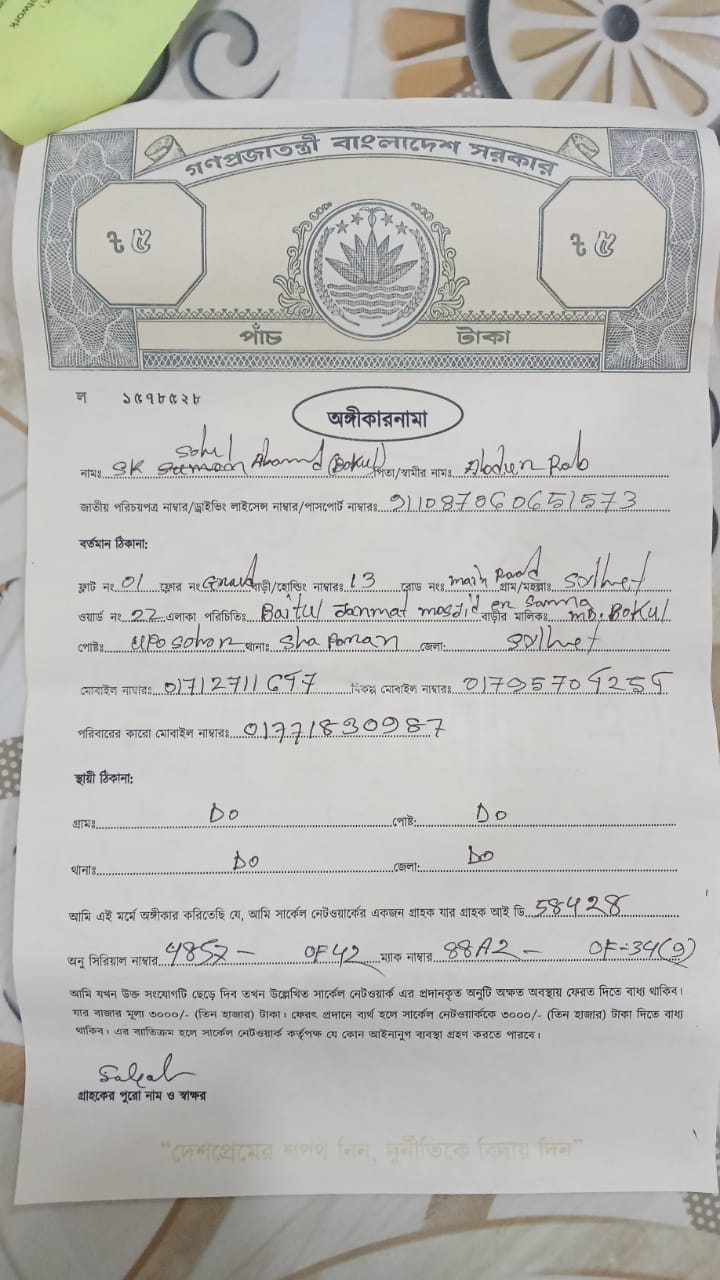 twork
গণপ্রজাতন্ত্রী বাংলাদেশ সরকার
৳ ৫ ৳ ৫
পাঁচ টাকা
ল ১৫৭৮৫২৮
অঙ্গীকারনামা
নামঃ SK Sohel Ahamd (Bokul) পিতা/স্বামীর নামঃ Abdur Rob
জাতীয় পরিচয়পত্র নাম্বার/ড্রাইভিং লাইসেন্স নাম্বার/পাসপোর্ট নাম্বারঃ 911087060651573
বর্তমান ঠিকানা:
ফ্লাট নং 01 ফ্লোর নং বাড়ী/হোল্ডিং নাম্বারঃ 13 রোড নংঃ main Road গ্রাম/মহল্লাঃ Sylhet
ওয়ার্ড নং 22 এলাকা পরিচিতিঃ Baitul Jannat mosjid er Samna বাড়ীর মালিকঃ MD. BOKUL
পোষ্টঃ UPO Sohor থানাঃ Sha Poran জেলা: Sylhet
মোবাইল নাম্বারঃ 01712711697 বিকল্প মোবাইল নাম্বারঃ 01795709259
পরিবারের কারো মোবাইল নাম্বারঃ 01771830987
স্থায়ী ঠিকানা:
গ্রামঃ Do পোষ্ট: Do
থানাঃ Do জেলা: Do
আমি এই মর্মে অঙ্গীকার করিতেছি যে, আমি সার্কেল নেটওয়ার্কের একজন গ্রাহক যার গ্রাহক আই ডি 58428
অনু সিরিয়াল নাম্বার 4857- 0F42 ম্যাক নাম্বার 88A2- 0F-34(9)
আমি যখন উক্ত সংযোগটি ছেড়ে দিব তখন উল্লেখিত সার্কেল নেটওয়ার্ক এর প্রদানকৃত অনুটি অক্ষত অবস্থায় ফেরত দিতে বাধ্য থাকিব।
যার বাজার মূল্য ৩০০০/- (তিন হাজার) টাকা। ফেরৎ প্রদানে ব্যর্থ হলে সার্কেল নেটওয়ার্ককে ৩০০০/- (তিন হাজার) টাকা দিতে বাধ্য
থাকিব। এর ব্যতিক্রম হলে সার্কেল নেটওয়ার্ক কর্তৃপক্ষ যে কোন আইনানুগ ব্যবস্থা গ্রহণ করতে পারবে।
গ্রাহকের পুরো নাম ও স্বাক্ষর
“দেশপ্রেমের শপথ নিন, দুর্নীতিকে বিদায় দিন”